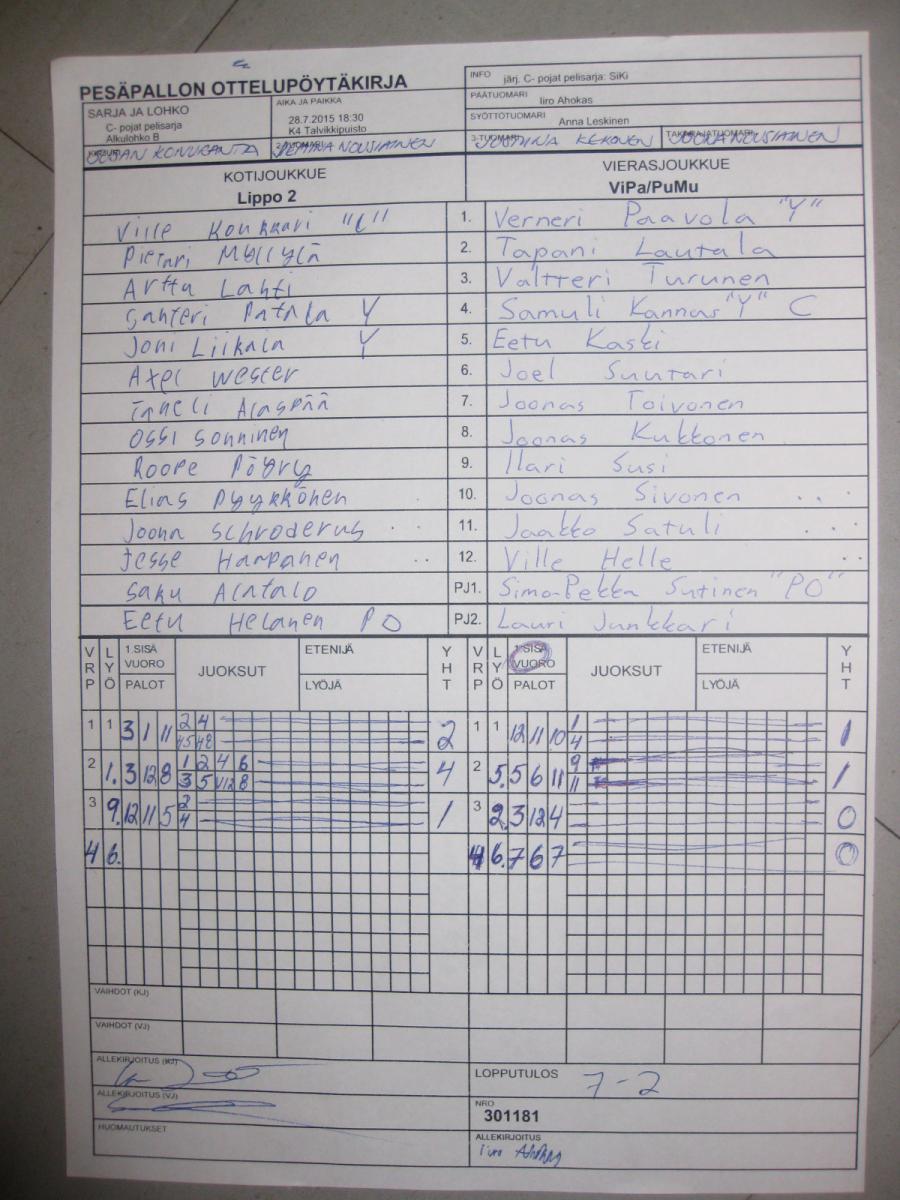 PESÄPALLON OTTELUPÖYTÄKIRJA
INFO järj. C- pojat pelisarja: SiKi
PÄÄTUOMARI Iiro Ahokas
SYÖTTÖTUOMARI Anna Leskinen
SARJA JA LOHKO
C- pojat pelisarja
Alkulohko B
AIKA JA PAIKKA
28.7.2015 18:30
K4 Talvikkipuisto
NOUSIAINEN 3-TUOMARI KEKONEN TAKARAJATUOMARI NOUSIAINEN
KOTIJOUKKUE VIERASJOUKKUE
Lippo 2 ViPa/PuMu
Ville 1. Verneri Paavola "Y"
Pietari Myllylä 2. Tapani Lautala
Arttu Lahti 3. Valtteri Turunen
Santeri Patala Y 4. Samuli Kannas "Y" C
Joni Liikala Y 5. Eetu Kaski
Axel Wester 6. Joel Suutari
Taneli Alaspää 7. Joonas Toivonen
Ossi Sonninen 8. Joonas Kukkonen
Roope Pöyry 9. Ilari Susi
Elias Pyykkönen 10. Joonas Sivonen
Joona Schroderus 11. Jaakko Satuli
Jesse Harpanen 12. Ville Helle
Saku Alatalo PJ1. Simo-Pekka Sutinen "PO"
Eetu Helanen PO PJ2. Lauri Junkkari
VRP LYÖ 1.SISÄ VUORO PALOT JUOKSUT ETENIJÄ LYÖJÄ YHT VRP LYÖ 1.SISÄ VUORO PALOT JUOKSUT ETENIJÄ LYÖJÄ YHT
1 1 3 1 11 2 4 2 1 1 12 11 10 1 1
45 48 4
2 1. 3 12 8 1 2 4 6 4 2 5. 5 6 11 9 1
3 5 V12 8 11
3 9. 12 11 5 2 1 3 2. 3 12 4 0
4
4 6. 4 6. 7 6 7 0
VAIHDOT (KJ)
VAIHDOT (VJ)
ALLEKIRJOITUS (KJ)
LOPPUTULOS 7-2
ALLEKIRJOITUS (VJ)
NRO
301181
HUOMAUTUKSET
ALLEKIRJOITUS
Iiro Ahokas